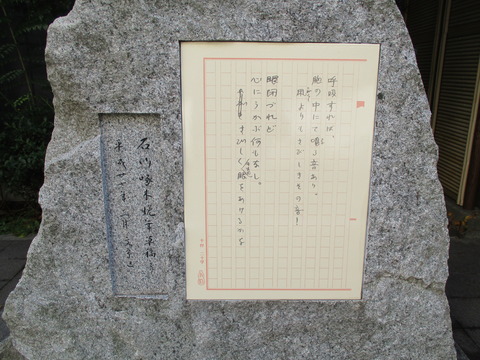 呼吸すれば、
胸の中にて鳴る音あり。
凩よりもさびしきその音!
眼閉づれど
心にうかぶ何もなし。
さびしく また 眼をあけるかな
石川啄木
平成